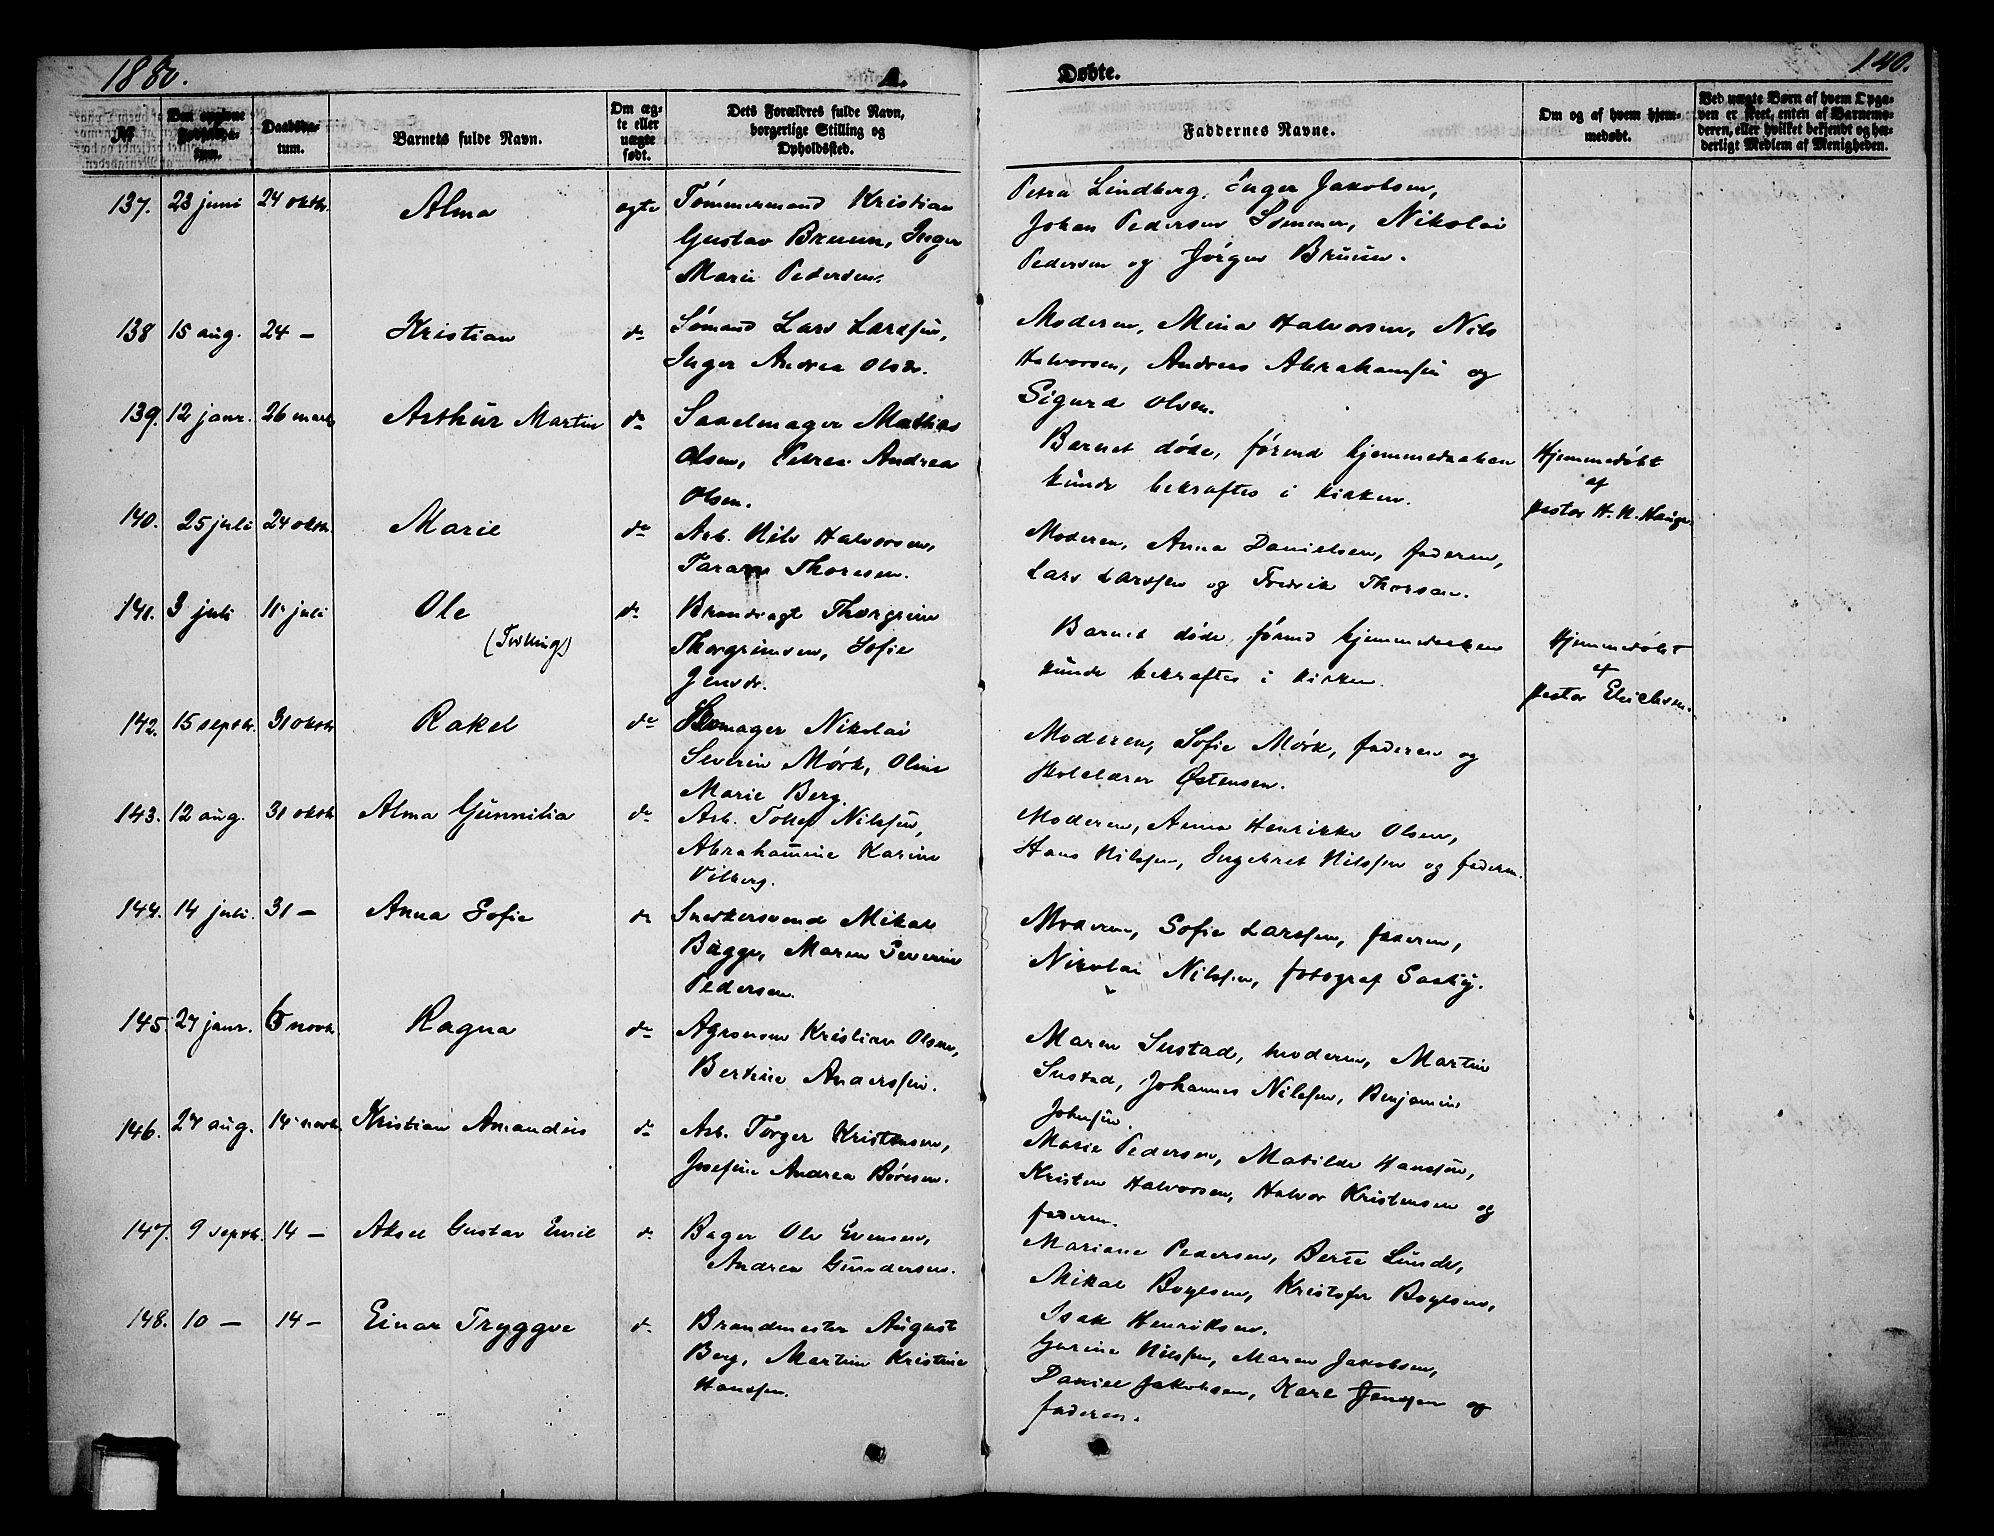 1880.
A.
Døbte.
140.
№
Den opgivne Fødselsdatum.
Daabsdatum.
Barnets fulde Navn.
Om ægte eller uægte født.
Dets Forældres fulde Navn, borgerlige Stilling og Opholdssted.
Faddernes Navne.
Om og af hvem hjemmedøbt.
Ved uægte Børn af hvem Opgaven er skeet, enten af Barnemoderen, eller hvilket bekjendt og hæderligt Medlem af Menigheden.
137. 23 juni 24 oktbr. Alma ægte Tømmermand Kristian
Gustav Bruun, Inger
Marie Pedersen.
Petra Lindberg, Inger Jakobsen,
Johan Pedersen Sommer, Nikolai
Pedersen og Jørgen Bruun.
138 15 aug. 24 – Kristian do Sømand Lars Larssen,
Inger Andrea Olsdr.
Moderen, Mina Halvorsen, Nils
Halvorsen, Andreas Abrahamsen og
Sigurd Olsen.
139. 12 janr. 26 marts Arthur Martin do Sadelmager Mathias
Olsen, Petrea Andrea
Olsen.
Barnet døde, førend hjemmedaaben
kunde bekræftes i kirken.
Hjemmedøbt
af
pastor H. N. Hauge.
140. 25 juli 24 oktbr. Marie do Arb. Nils Halvorsen,
Taran Thoresen.
Moderen, Anna Danielsen, faderen,
Lars Larssen og Fredrik Thorsen.
141. 3 juli 11 juli Ole do Brandvagt Thorgrim
(Tvilling)
Thorgrimsen, Sofie
Jensdr.
Barnet døde, førend hjemmedaaben
kunde bekræftes i kirken.
Hjemmedøbt
af
pastor Erichsen.
142. 15 septbr. 31 oktbr Rakel do Skomager Nikolai
Severin Mørk, Oline
Marie Berg.
Moderen, Sofie Mørk, faderen og
Østensen.
143. 12 aug. 31 oktbr Alma Gunnilia do Arb. Tollef Nilssen,
Abrahamine Karine
Vilberg.
Moderen, Anna Henrikke Olsen,
Hans Nilssen, Ingebret Nilssen og faderen.
144. 14 juli. 31 – Anna Sofie do Snedkersvend Mikal
Bugge, Maren Severine
Pedersen.
Moderen, Sofie Larssen, faderen,
Nikolai Nilssen, fotograf
145. 27 janr. 6 novbr. Ragna do Agronom Kristian Olsen,
Bertine Anderssen.
Maren Sustad, moderen, Martin
Sustad, Johannes Nilssen, Benjamin
Johnsen.
146. 27 aug. 14 novbr. Kristian Amandus do Arb. Torger Kristensen,
Josefine Andrea Børesen.
Marie Pedersen, Matilde Hanssen,
Kristen Halvorsen, Halvor Kristensen og
faderen.
147. 9 septbr. 14 – Aksel Gustav Emil do Bager Ole Evensen,
Andrea Gundersen.
Mariane Pedersen, Berte Lunde,
Mikal Boyesen, Kristofer Boyesen,
Isak Henriksen.
148. 10 – 14 – Einar Tryggve do Brandmester August
Berg, Martine Kristine
Hanssen.
Gurine Nilssen, Maren Jakobsen,
Daniel Jakobsen, Karl Jenssen og
faderen.